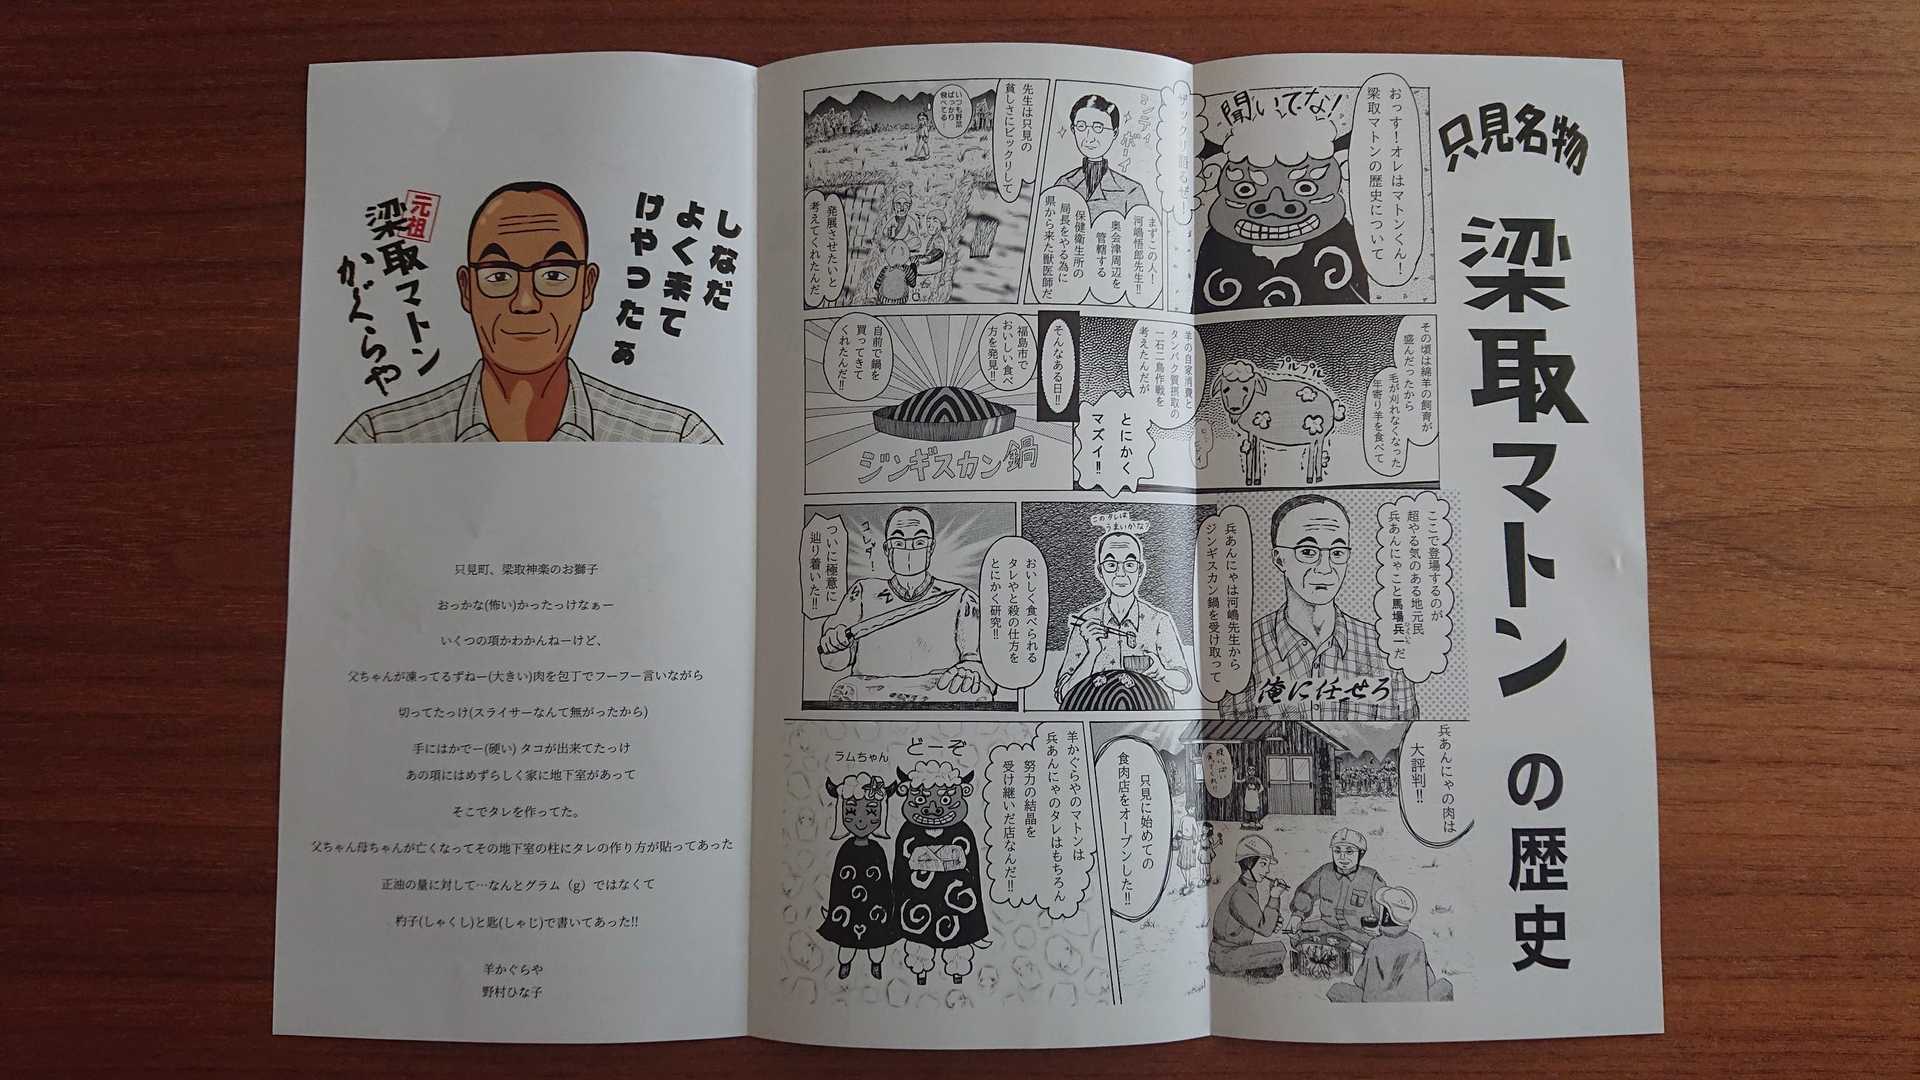 只見名物
梁取マトンの歴史
おっす!オレはマトンくん!
梁取マトンの歴史について
聞いてな!
ザックリ語るぜー!
まずこの人!
河嶋悟郎先生!!
奥会津周辺を
管轄する
保健衛生所の
局長をやる為に
県から来た獣医師だ
先生は只見の
貧しさにビックリして
いつも野菜
ばっかり
食べてる
発展させたいと
考えてくれたんだ
その頃は綿羊の飼育が
盛んだったから
毛が刈れなくなった
年寄り羊を食べて
プルプル
羊の自家消費と
タンパク質摂取の
一石二鳥作戦を
考えたんだが
とにかく
マズイ!!
そんなある日!!
福島市で
おいしい食べ
方を発見!!
自前で鍋を
買ってきて
くれたんだ!!
ジンギスカン鍋
ここで登場するのが
超やる気のある地元民
兵あんにゃこと馬場兵一だ
俺に任せろ
兵あんにゃは河嶋先生から
ジンギスカン鍋を受け取って
このタレは
うまいかな?
おいしく食べられる
タレやと殺の仕方を
とにかく研究!!
コレダ!
ついに極意に
辿り着いた!!
兵あんにゃの肉は
大評判!!
只見に始めての
食肉店をオープンした!!
羊かぐらやのマトンは
兵あんにゃのタレはもちろん
努力の結晶を
受け継いだ店なんだ!!
どーぞ
ラムちゃん
しなだ
よく来て
けやったなぁ
元祖
梁取マトン
かぐらや
只見町、梁取神楽のお獅子
おっかな(怖い)かったっけなぁー
いくつの項かわかんねーけど、
父ちゃんが凍ってるずねー(大きい)肉を包丁でフーフー言いながら
切ってたっけ(スライサーなんて無がったから)
手にはかでー(硬い) タコが出来てたっけ
あの項にはめずらしく家に地下室があって
そこでタレを作ってた。
父ちゃん母ちゃんが亡くなってその地下室の柱にタレの作り方が貼ってあった
正油の量に対して…なんとグラム（g）ではなくて
杓子(しゃくし)と匙(しゃじ)で書いてあった!!
羊かぐらや
野村ひな子